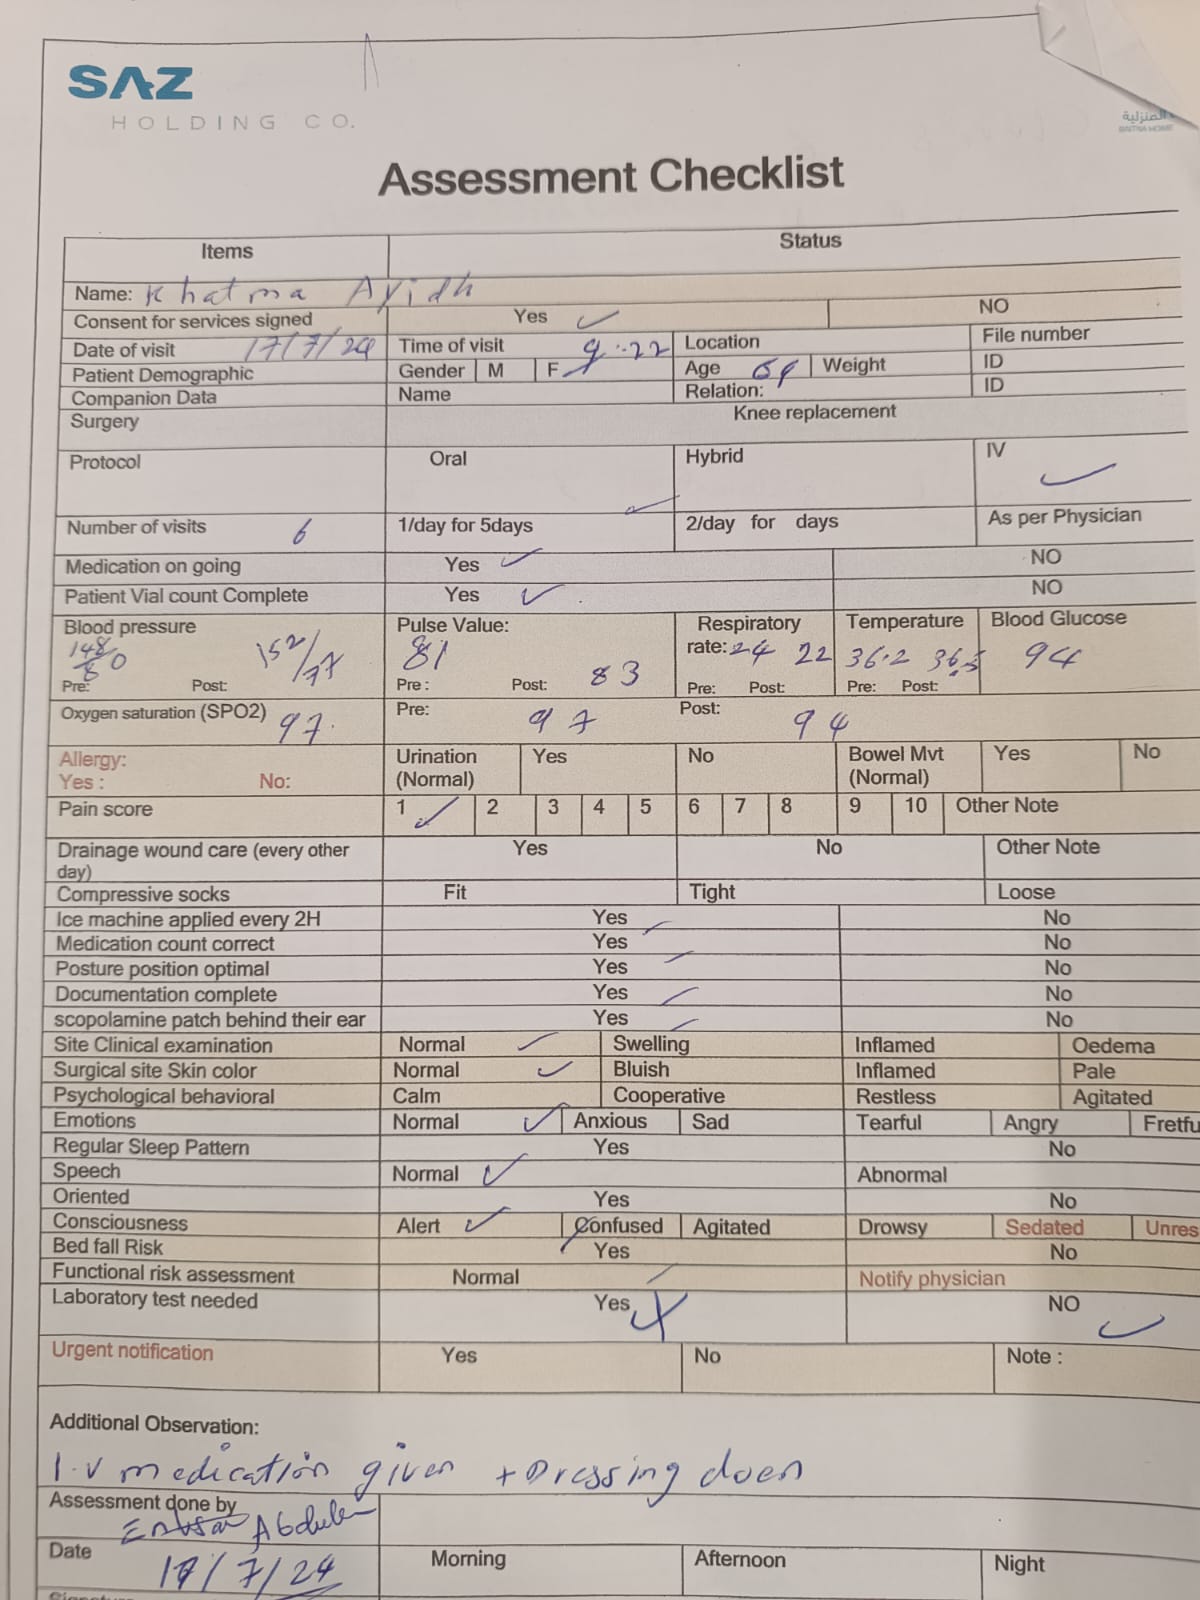 SAZ
HOLDING CO.
المنزلية
BAITNA HOME
Assessment Checklist
Items Status
Name: Khatma Ayidh
Consent for services signed Yes ✓ NO
Date of visit 17/7/24 Time of visit 9:22 Location File number
Patient Demographic Gender M F ✓ Age 69 Weight ID
Companion Data Name Relation: ID
Surgery Knee replacement
Protocol Oral Hybrid IV ✓
Number of visits 6 1/day for 5days ✓ 2/day for days As per Physician
Medication on going Yes ✓ NO
Patient Vial count Complete Yes ✓ NO
Blood pressure Pulse Value: Respiratory Temperature Blood Glucose
148/80 152/77 81 83 rate: 24 22 36.2 36.5 94
Pre: Post: Pre: Post: Pre: Post: Pre: Post:
Oxygen saturation (SPO2) 97. Pre: 97 Post: 94
Allergy: Urination Yes No Bowel Mvt Yes No
Yes : No: (Normal) (Normal)
Pain score 1 ✓ 2 3 4 5 6 7 8 9 10 Other Note
Drainage wound care (every other Yes No Other Note
day)
Compressive socks Fit Tight Loose
Ice machine applied every 2H Yes ✓ No
Medication count correct Yes No
Posture position optimal Yes ✓ No
Documentation complete Yes ✓ No
scopolamine patch behind their ear Yes ✓ No
Site Clinical examination Normal ✓ Swelling Inflamed Oedema
Surgical site Skin color Normal ✓ Bluish Inflamed Pale
Psychological behavioral Calm Cooperative Restless Agitated
Emotions Normal ✓ Anxious Sad Tearful Angry Fretfu
Regular Sleep Pattern Yes No
Speech Normal ✓ Abnormal
Oriented Yes No
Consciousness Alert ✓ Confused Agitated Drowsy Sedated Unres
Bed fall Risk Yes No
Functional risk assessment Normal ✓ Notify physician
Laboratory test needed Yes NO ✓
Urgent notification Yes No Note :
Additional Observation:
I.V medication given + Dressing doen
Assessment done by
Date 17/7/24 Morning Afternoon Night